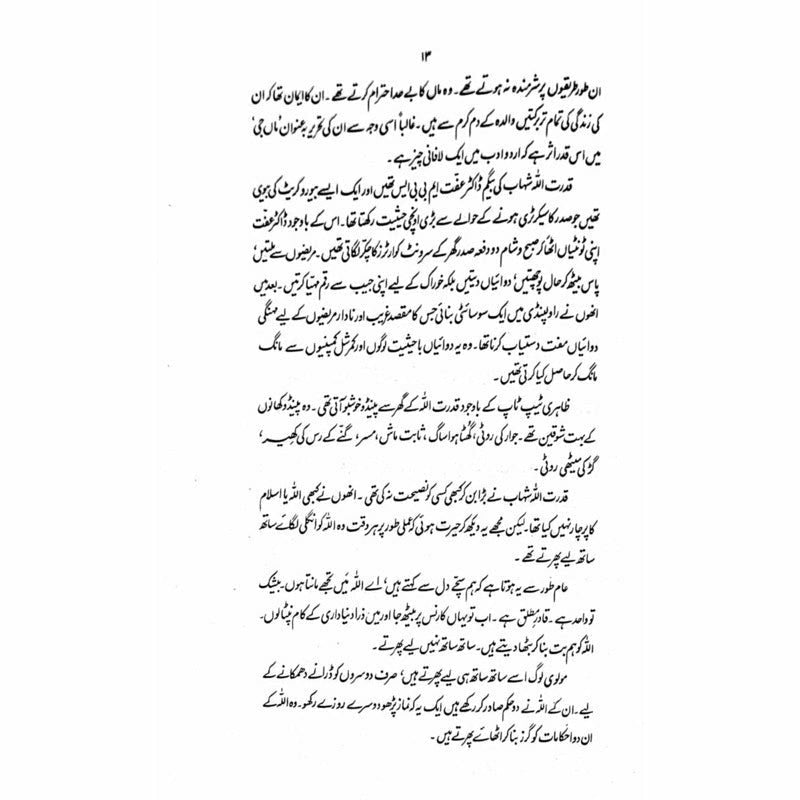 ۱۳
ان طور طریقوں پر شرمندہ نہ ہوتے تھے۔ وہ ماں کا بے حد احترام کرتے تھے۔ ان کا ایمان تھا کہ ان
کی زندگی کی تمام تر برکتیں والدہ کے دم کرم سے ہیں۔ غالباً اسی وجہ سے ان کی تحریر بہ عنوان 'ماں جی'
میں اس قدر اثر ہے کہ اردو ادب میں ایک لافانی چیز ہے۔
قدرت اللہ شہاب کی بیگم ڈاکٹر عفّت ایم بی بی ایس تھیں اور ایک ایسے بیوروکریٹ کی بیوی
تھیں جو صدر کا سیکرٹری ہونے کے حوالے سے بڑی اونچی حیثیت رکھتا تھا۔ اس کے باوجود ڈاکٹر عفت
اپنی ٹونٹیاں اٹھا کر صبح و شام دو دفعہ صدر گھر کے سرونٹ کوارٹرز کا چکّر لگاتی تھیں۔ مریضوں سے ملتیں'
پاس بیٹھ کر حال پوچھتیں' دوائیاں دیتیں بلکہ خوراک کے لیے اپنی جیب سے رقم مہیّا کرتیں۔ بعد میں
انھوں نے راولپنڈی میں ایک سوسائٹی بنائی جس کا مقصد غریب اور نادار مریضوں کے لیے مہنگی
دوائیاں مفت دستیاب کرنا تھا۔ وہ یہ دوائیاں باحیثیت لوگوں اور کمرشل کمپنیوں سے مانگ
مانگ کر حاصل کیا کرتی تھیں۔
ظاہری ٹیپ ٹاپ کے باوجود قدرت اللہ کے گھر سے پینڈو خوشبو آتی تھی۔ وہ پینڈو کھانوں
کے بہت شوقین تھے۔ جوار کی روٹی، گھٹا ہوا ساگ، ثابت ماش، مسر، گنّے کے رس کی کھیر،
گڑ کی میٹھی روٹی۔
قدرت اللہ شہاب نے بڑا بن کر کبھی کسی کو نصیحت نہ کی تھی۔ انھوں نے کبھی اللہ یا اسلام
کا پرچار نہیں کیا تھا۔ لیکن مجھے یہ دیکھ کر حیرت ہوئی کہ عملی طور پر ہر وقت وہ اللہ کو انگلی لگائے ساتھ
ساتھ لیے پھرتے تھے۔
عام طور سے یہ ہوتا ہے کہ ہم سچّے دل سے کہتے ہیں' اے اللہ میں تجھے مانتا ہوں۔ بیشک
تو واحد ہے۔ قادرِ مطلق ہے۔ اب تو یہاں کارنس پر بیٹھ جا اور میں ذرا دنیاداری کے کام نپٹا لوں۔
اللہ کو ہم بت بنا کر بٹھا دیتے ہیں۔ ساتھ ساتھ نہیں لیے پھرتے۔
مولوی لوگ اسے ساتھ ساتھ ہی لیے پھرتے ہیں' صرف دوسروں کو ڈرانے دھمکانے کے
لیے۔ ان کے اللہ نے دو حکم صادر کر رکھے ہیں ایک یہ کہ نماز پڑھو دوسرے روزے رکھو۔ وہ اللہ کے
ان دو احکامات کو گرز بنا کر اٹھائے پھرتے ہیں۔